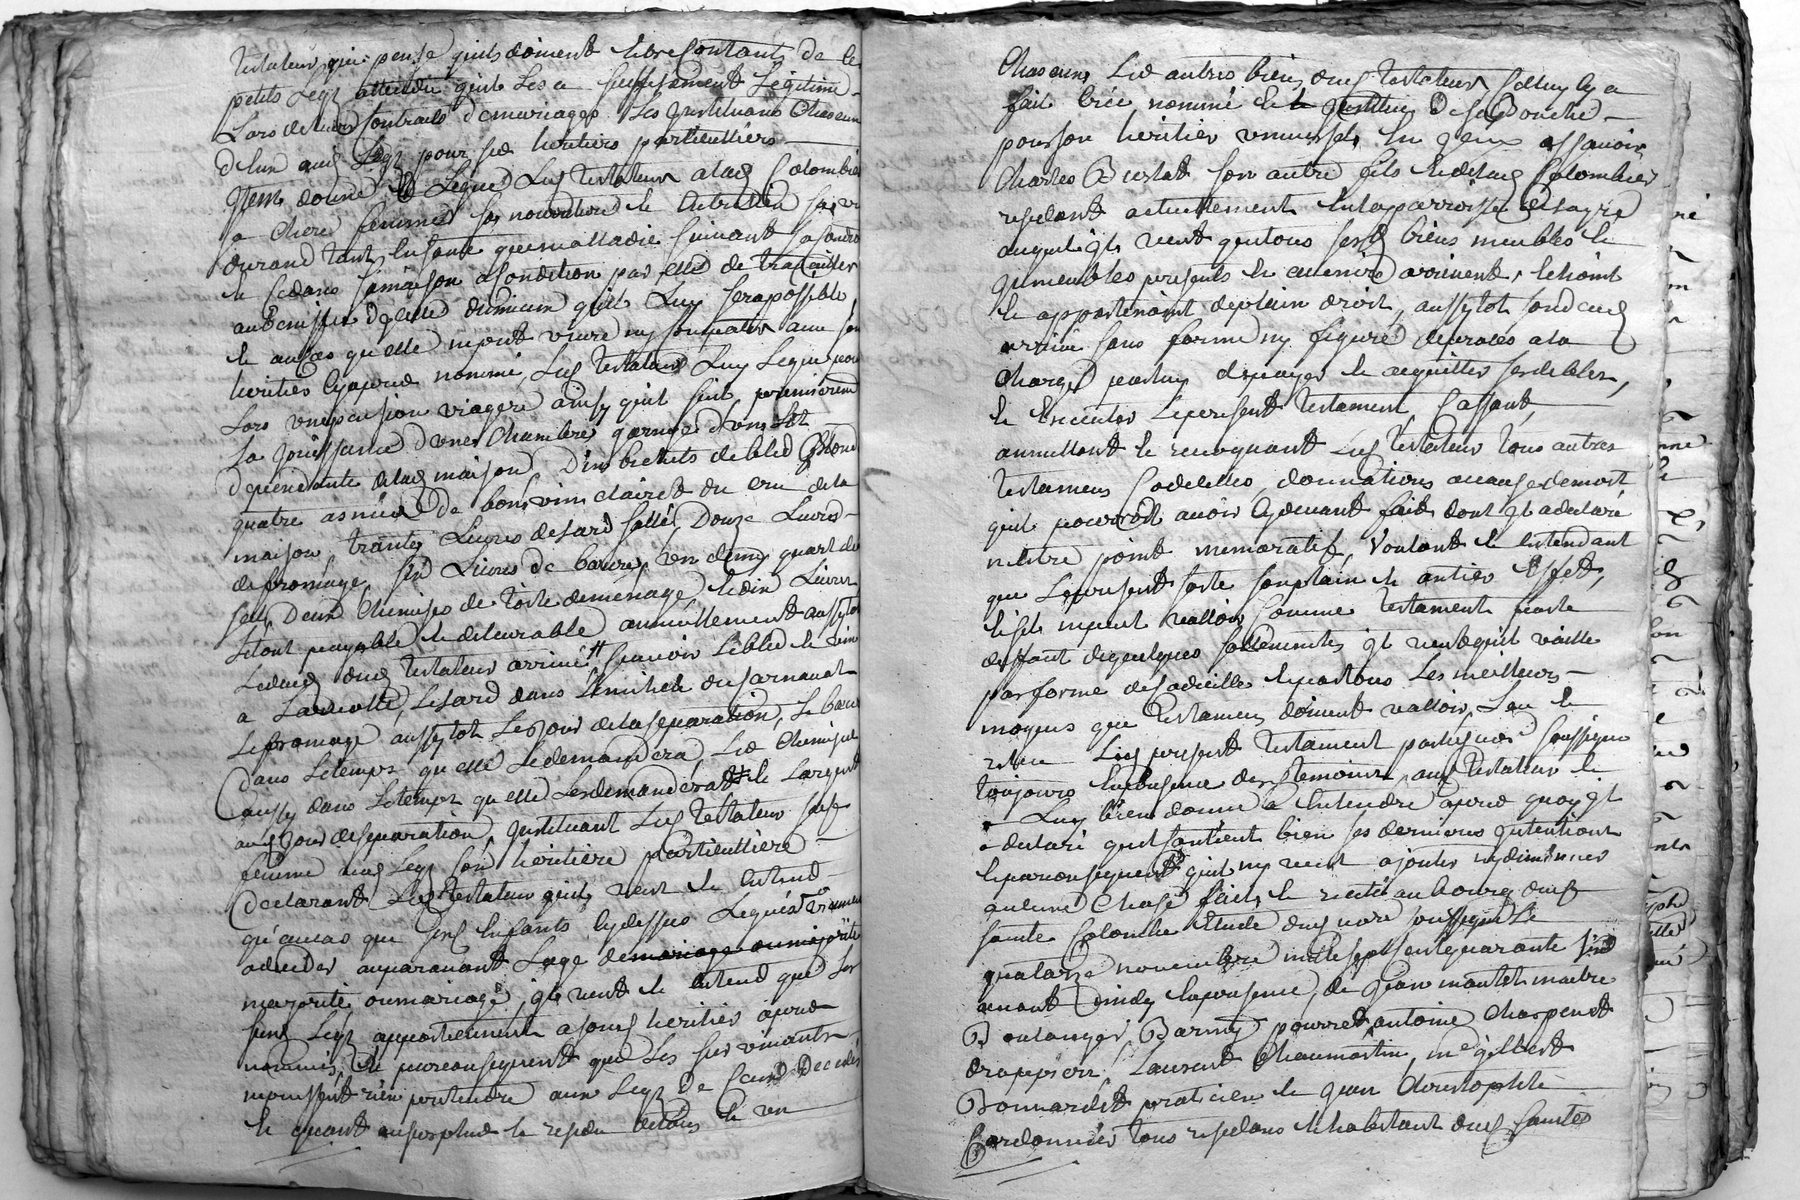 testateur qui pense quils doivent etre Contants de ce
petits Legs attendu quil Les a suffisement Legitimé
Lors de leurs Contracts de mariages Les instituans Chascun
delun aud Legs pour ses heritiers particulliers
Item donne et Legue Led testateur alad Colombier
sa Chere femme sa nourriture et entretien sa vie
durand tant en santé que malladie suivant sa condi
et dans sa maison a Condition par elle de travailler
au benefice dycelle du mieux quil Luy sera possible
et au cas quelle ne peut vivre ny sonmater avec son
heritier cy apres nommé, Led testateur Luy Legue pour
Lors une pension viagere ainsy quil suit, premierem
La jouissance dune Chambre garnie dun Lit
dependante delad maison, Dix bichets de bled Blond
quatre asnées de bon vin clairet du cru dela
maison, trante Livres de lard sallé, Douze Livres
de fromage, six Livres de beurre, un demy quart de
sel, Deux Chemises de toile de menage, et dix Livres
Le tout payable et delivrable annuellement aussytot
Ledeces dud testateur arrivé # scavoir Le bled et Le vin
a La recolte, Le lard dans Lemitete du Carnaval
Le fromage aussytot Le jour dela separation, Le beurre
Dans Le temps quelle Le demandera, Les Chemises
aussy dans Le temps quelle Les demandera # et Largent
aud jour de separation, instituant Led testateur sad
femme aud Legs son heritiere particulliere
Declarant Led testateur quil veut et entend
qu'au cas que sesd enfants cy dessus Legués viennent
a deceder auparavant Lage de mariage ou majorité
majorité ou mariage, il veut et entend que Les
susd Legs appartiennent a sond heritier apres
nommé, Et par consequent que Les survivants
ne puissent rien pretendre aux Legs de Ceux Decedés
et quant au surplus et residu de tous et un
Chascuns Les autres biens dud testateur Celuy cy a
fait crée, nommé et institué de sa Bouche
pour son heritier universel, en yceux assavoir
Charles Burlat son autre fils et de lad Colombier
residant actuellement en la parroisse de
auquel il veut que tous sesd biens meubles et
immeubles presents et avenirs arrivent, et soint
et appartenaint de plain droit, aussytot son deces
arrivé sans forme ny figure de proces a la
Charge par luy de payer et acquitter ses debtes,
et executer Le present testament, Cassant,
annullant et revoquant Led testateur tous autres
testamens Codicilles, donnations a cause de mort
quil pourroit avoir cy devant fait dont il a declaré
nestre point memoratif, Voulant et entendant
que Le present sorte son plain et entier Effect,
et sil ne peut valloir Comme testament faute
deffaut de quelques sollemnités il veut quil vaille
par forme de Codicille et par tous Les meilleurs
moyens que testamens doivent valloir, Leu et
releu Led present testament par le no.re soussigné
toujours en presence des temoins, aud testateur et
a Luy bien donné a entendre apres quoy il
a declaré quil Contient bien ses dernieres intentions
et par consequent quil ny veut ajouter ny diminuer
aulcune Chose fait et recité au bourg dud
sainte Colombe Etude dud no.re soussigné Le
quatorze novembre mille sept cent quarante six
avant midy en presence, de Jean mantel maitre
Boulanger, Barmy pourret, antoine Charpenet
drappiers, Laurent Chaumartin, me gilbert
Bonnardet praticien et Jean Christophle
Cordonnier tous residans et habitant dud Sainte